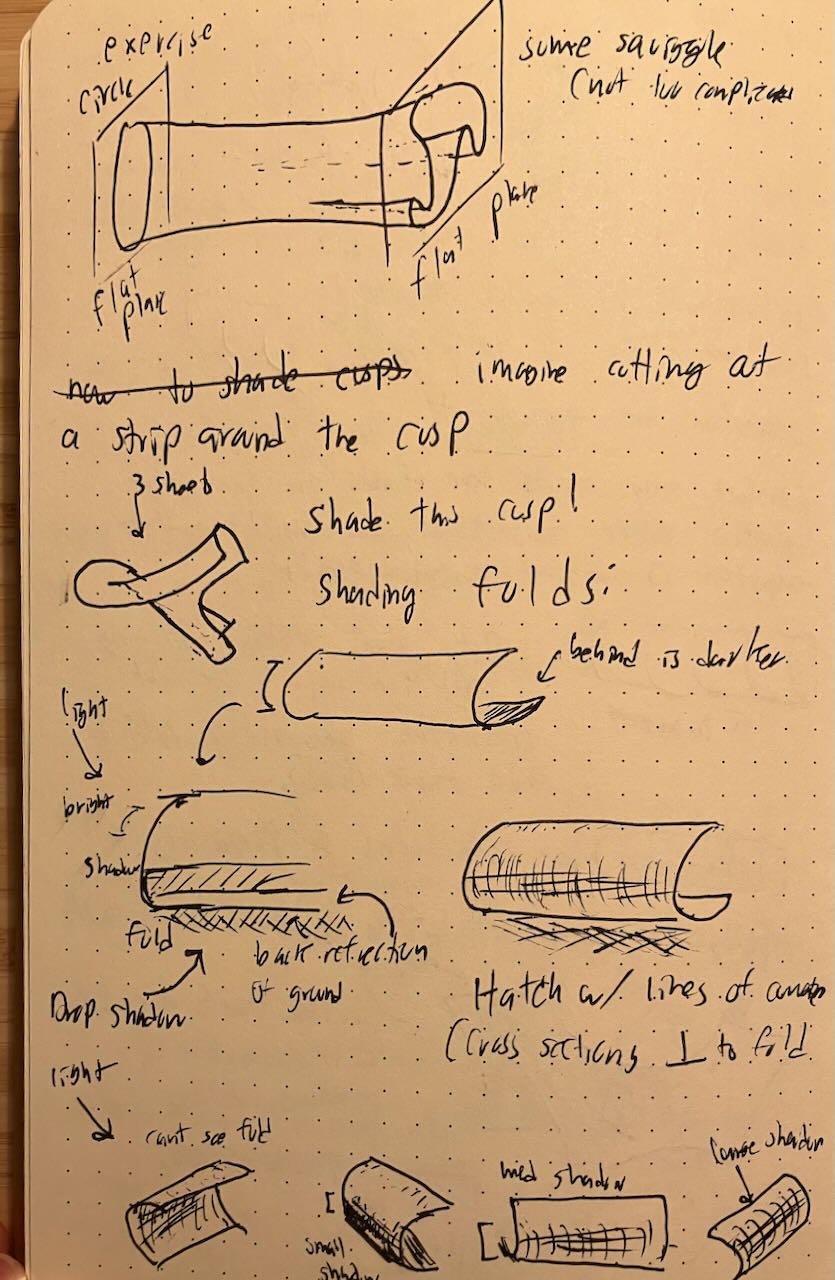 exercise
circle
some squiggle
(not too
flat
plane
flat plane
to shade cusps imagine cutting at
a strip around the cusp
3 sheets
shade this cusp!
shading folds:
behind is darker
light
bright
shadow
fold
back reflection
of ground
Drop shadow
Hatch w/ lines of
(cross sections ⊥ to fold
light
cant see fold
small
shadow
med shadow
large shadow